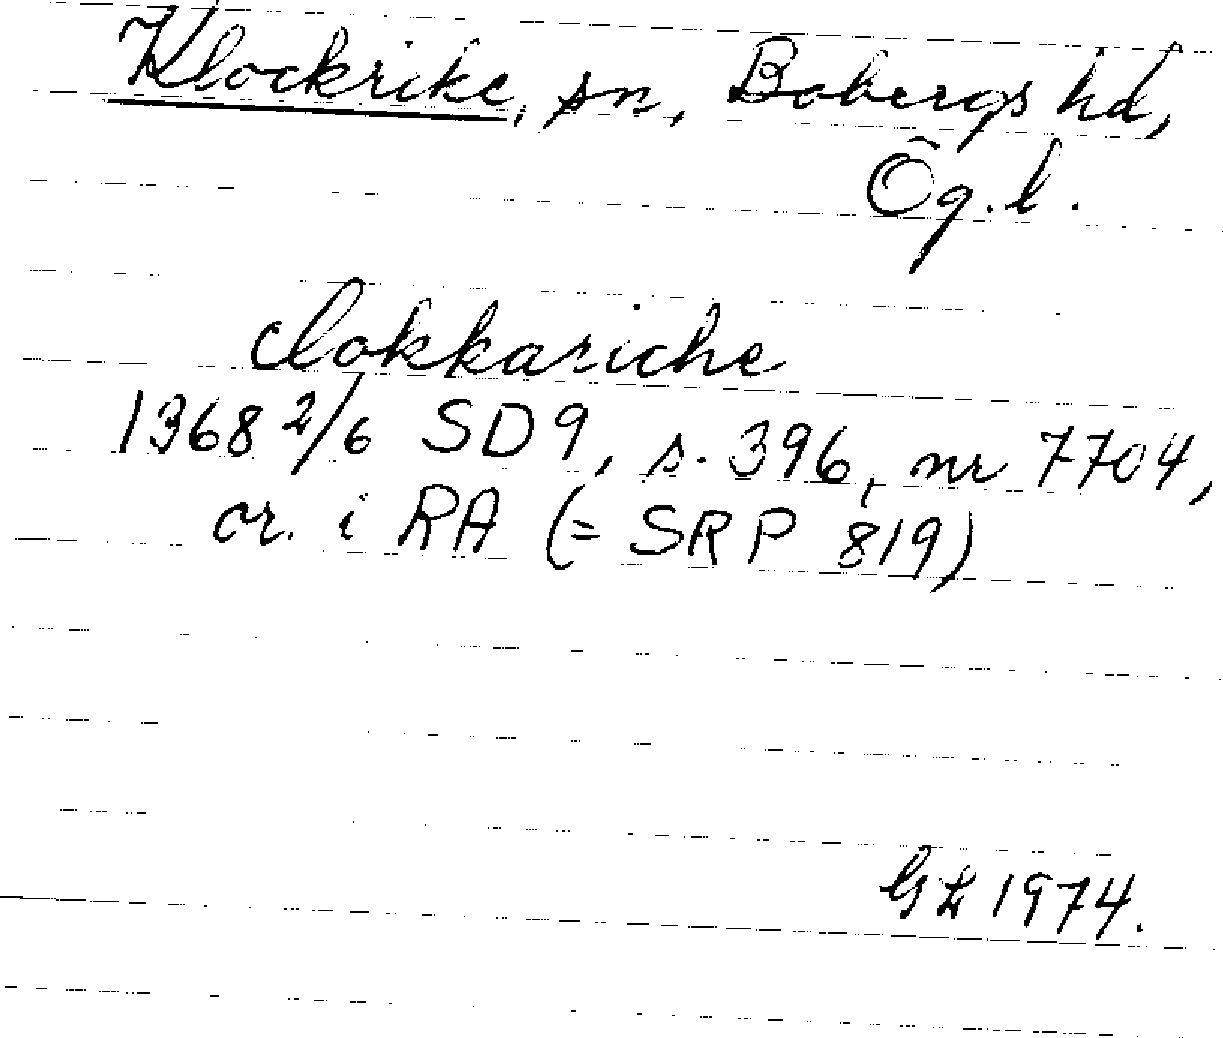 Klockrike, sn, Bobergs hd,
Ög.l.
clokkariche
1368 2/6 SD9, s. 396, nr 7704,
or. i RA (= SRP 819)
1974.